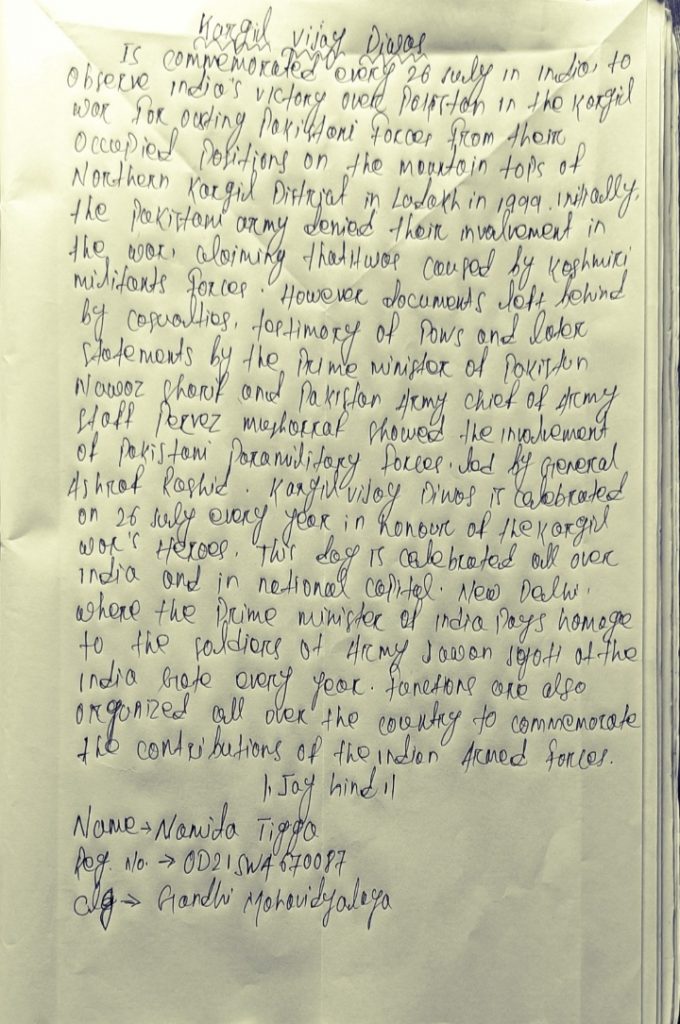 Kargil Vijay Diwas
Is commemorated every 26 July in India, to
observe India's victory over Pakistan in the Kargil
war for ousting Pakistani Forces from their
Occupied Positions on the mountain tops of
Northern Kargil District in Ladakh in 1999. initially,
the Pakistani army denied their involvement in
the war, claiming that it was caused by Kashmiri
militants forces. However documents left behind
by casualties, testimony of POWs and later
statements by the Prime minister of Pakistan
Nawaz Sharif and Pakistan Army chief of Army
staff Pervez musharraf showed the involvement
of Pakistani Paramilitary forces. led by General
Ashraf Rashid. Kargil vijay Diwas is celebrated
on 26 July every year in honour of the Kargil
war's Heroes. This day is celebrated all over
India and in national capital. New Delhi.
where the Prime minister of India Pays homage
to the soldiers at Army Jawan Jyoti at the
India Gate every year. functions are also
organized all over the country to commemorate
the contributions of the indian Armed forces.
|| Jay hind ||
Name → Namita Tigga
Reg. No. → OD21SWA670087
clg → Gandhi Mahavidyalaya